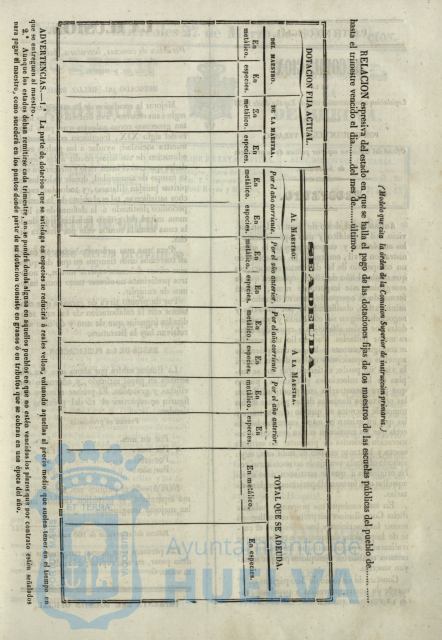 (Modelo que cita la órden de la Comision Superior de instruccion primaria.)
RELACION espresiva del estado en que se halla el pago de las dotaciones fijas de los maestros de las escuelas públicas del pueblo de............
hasta el trimestre vencido el dia........del mes de......último.
DOTACION FIJA ACTUAL.
SE ADEUDA.
DEL MAESTRO.
DE LA MAESTRA.
AL MAESTRO:
A LA MAESTRA.
TOTAL QUE SE ADEUDA.
Por el año corriente.
Por el año anterior.
Por el año corriente
Por el año anterior.
En metálico.
En especies.
En metálico.
En especies.
En metálico.
En especies.
En metálico.
En especies.
En metálico.
En especies.
En metálico.
En especies.
En metálico.
En especies.
ADVERTENCIAS.—1.ª La parte de dotacion que se satisfaga en especies se reducirá á reales vellon, valuando aquellas al precio medio que suelen tener en el tiempo en
que se entreguen al maestro.
2.ª Aunque los estados deban remitirse cada trimestre, no se pondrá deuda alguna en aquellos pueblos en que no estén vencidos los plazos que por contrato estén señalados
para pagar al maestro, como sucederá en los puntos donde parte de su dotacion consiste en granos ó en tributos que se cobran en una época del año.
Ayuntamiento de
HUELVA